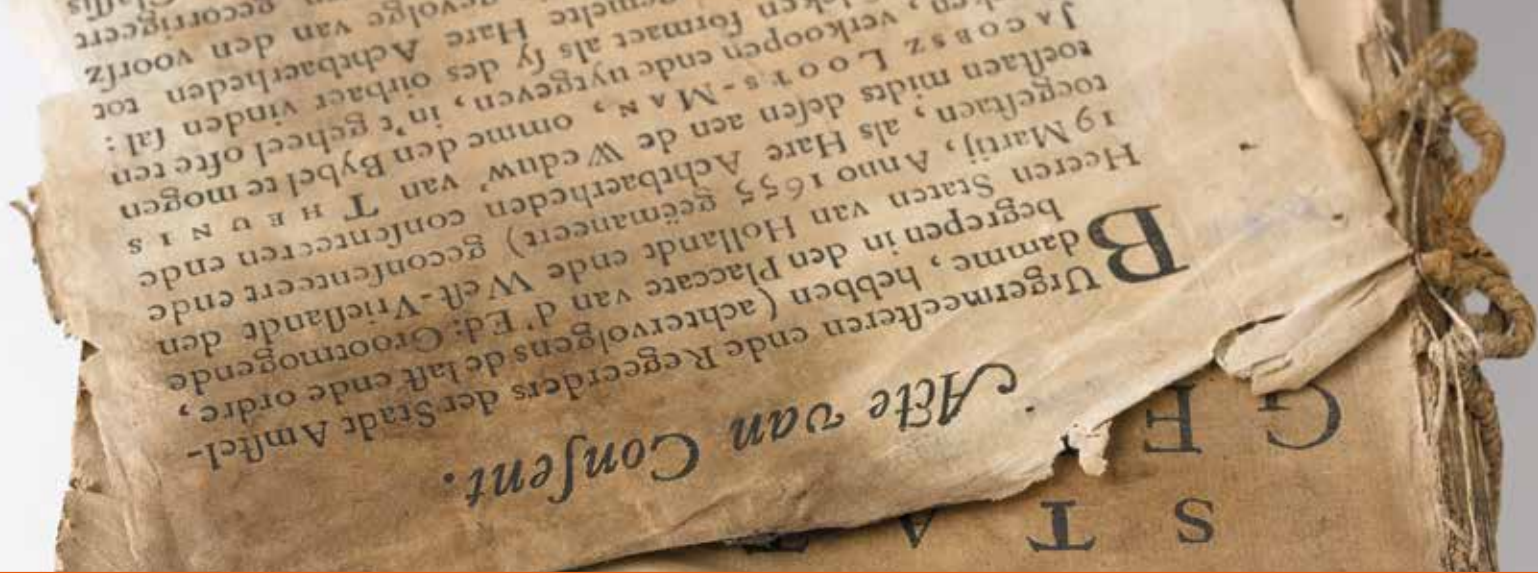 S T A T
G E
Acte van Conſent.
BUrgermeeſteren ende Regeerders der Stadt Amſtel-
damme, hebben (achtervolgens de laſt ende ordre,
begrepen in den Placcate van d'Ed: Grootmogende
Heeren Staten van Hollandt ende Weſt-Vrieſlandt den
19 Martij, Anno 1655 geëmaneert) geconſenteert ende
toegeſtaen, als Hare Achtbaerheden conſenteeren ende
toeſtaen midts deſen aen de Weduw' van THEUNIS
JACOBSZ LOOTS-MAN, omme den Bybel te mogen
verkoopen ende uytgeven, in't geheel ofte ten
formaet als ſy des oirbaer vinden ſal:
gemelte Hare Achtbaerheden tot
gevolge van den voorſz
gecorrigeert
Claſſis